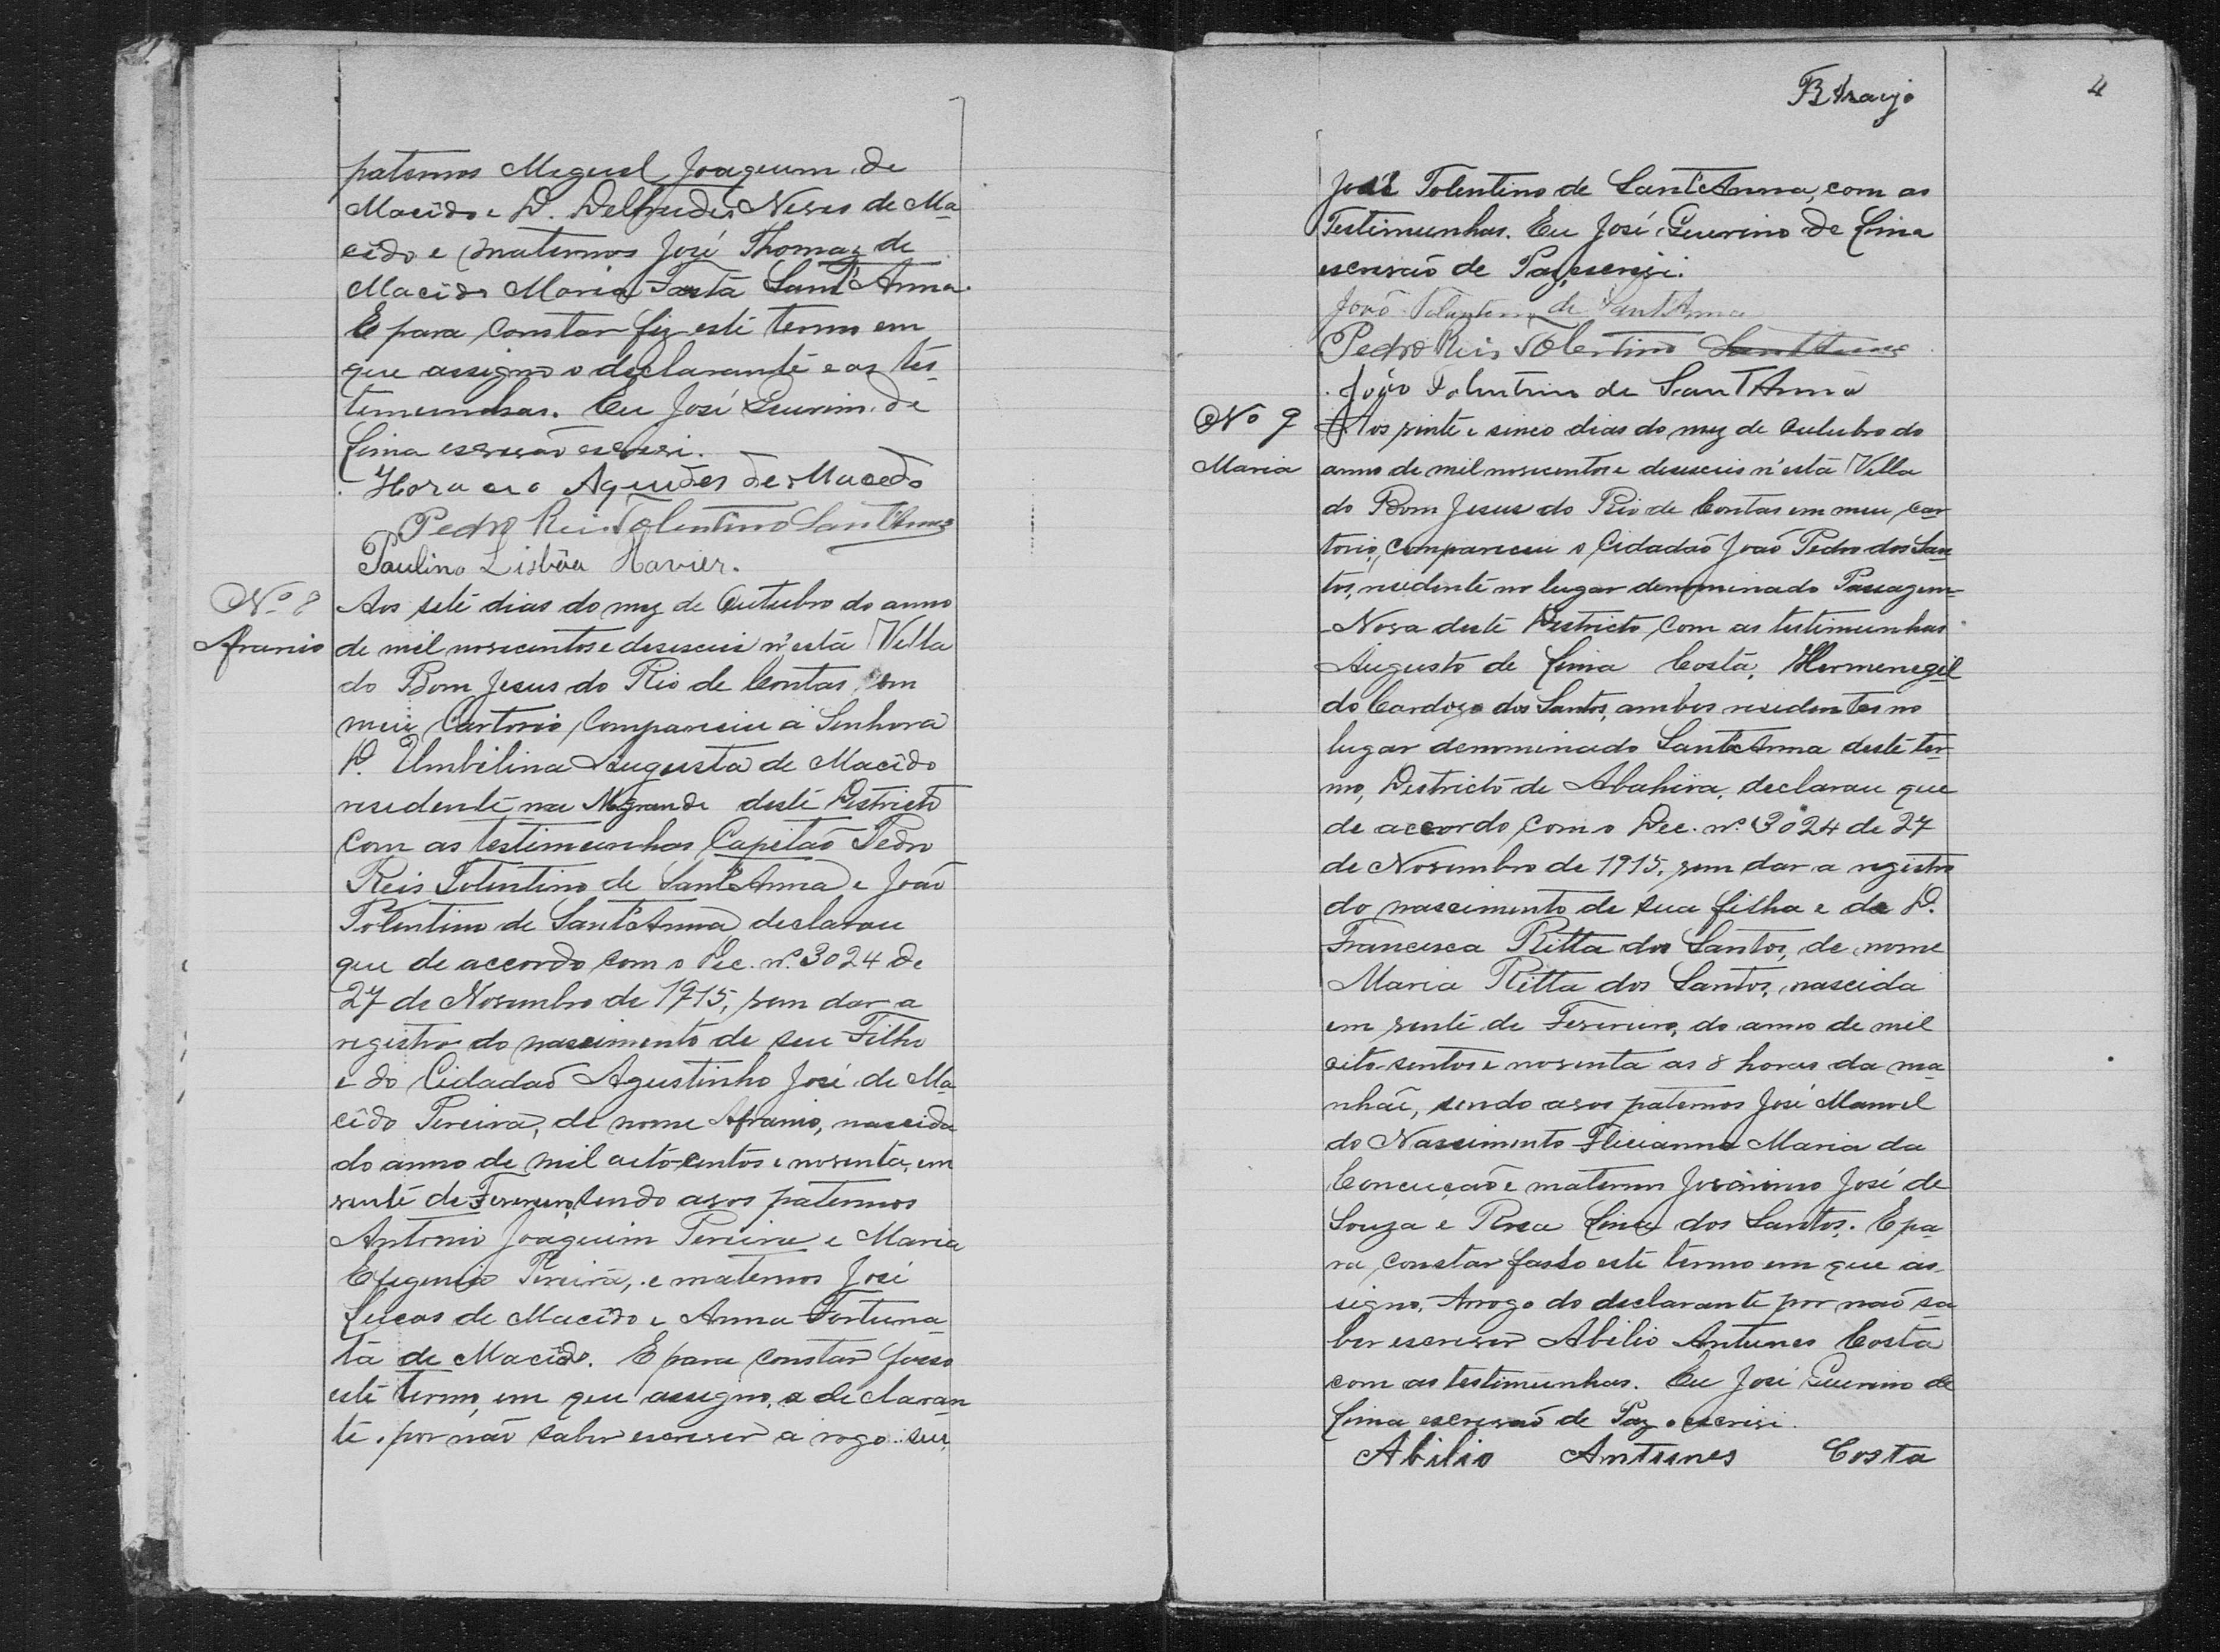 paternos Miguel Joaquim de
Macêdo e D. Delfrudes Neves de Ma-
cêdo e maternos José Thomaz de
Macêdo Maria Fasta Sant'Anna.
E para constar fiz esté termo em
que assigno o declaranté e as tes-
temunhas. Eu José Guerino de
Lima escrivão escrevi.
Horacio Aguides de Macedo
Pedro Reis Tolentino Sant'Anna
Paulino Lisbôa Xavier.
Nº 8
Afranio
Aos seté dias do mez de Outubro do anno
de mil novecentos e deseseis n'está Villa
do Bom Jesus do Rio de Contas, em
meu Cartorio, Compareceu a Senhora
D. Umbilina Augusta de Macêdo
residenté na Mgrande desté Destricto
com as testimunhas Capitão Pedro
Reis Tolentino de Sant'Anna e João
Tolentino de Sant'Anna declarou
que de accordo com o Dec. nº 3024 de
27 de Novembro de 1915, vem dar a
registro do nascimento de seu Filho
e do Cidadão Agustinho José de Ma-
cêdo Pereira, de nome Afranio, nascido
do anno de mil oito-centos e noventa, em
vinté de Fevereiro, sendo avos paternos
Antonio Joaquim Pereira e Maria
Efigenia Pereira, e maternos José
Lucas de Macêdo e Anna Fortuna-
ta de Macêdo. E para constar fasso
esté termo, em que assigno, a declaran-
té, por não saber escrever a rogo seu,
B Araujo
4
José Tolentino de Sant'Anna, com as
Testimunhas. Eu José Guerino de Lima
escrivão de Paz, escrevi.
João Tolentino de Sant'Anna
Pedro Reis Tolentino Sant'Anna
João Tolentino de Sant'Anna
Nº 9
Maria
Aos vinte e sinco dias do mez de Outubro do
anno de mil novecentos e deseseis n'está Villa
do Bom Jesus do Rio de Contas em meu car-
torio, compareceu o Cidadão João Pedro dos San-
tos, residenté no lugar denominado Passagem-
Nova desté Destricto, com as testimunhas
Augusto de Lima Costa, Hermenegil-
do Cardozo dos Santos, ambos residentes no
lugar denominado Sant'Anna desté ter-
mo, Destricto de Abahira, declarou que
de accordo com o Dec. nº 3024 de 27
de Novembro de 1915, vem dar a registro
do nascimento de sua filha e de D.
Francisca Ritta dos Santos, de nome
Maria Ritta dos Santos, nascida
em vinté de Fevereiro, do anno de mil
oito-sentos e noventa as 8 horas da ma-
nhãe, sendo avos paternos José Manoel
do Nascimento Flicianna Maria da
Conceição e maternos Joronimo José de
Souza e Roza Lina dos Santos. E pa-
ra constar fasso esté termo em que as-
signo, Arrogo do declaranté por não sa-
ber escrever Abilio Antunes Costa
com as testimunhas. Eu José Guerino de
Lima escrivão de Paz o escrevi.
Abilio Antunes Costa